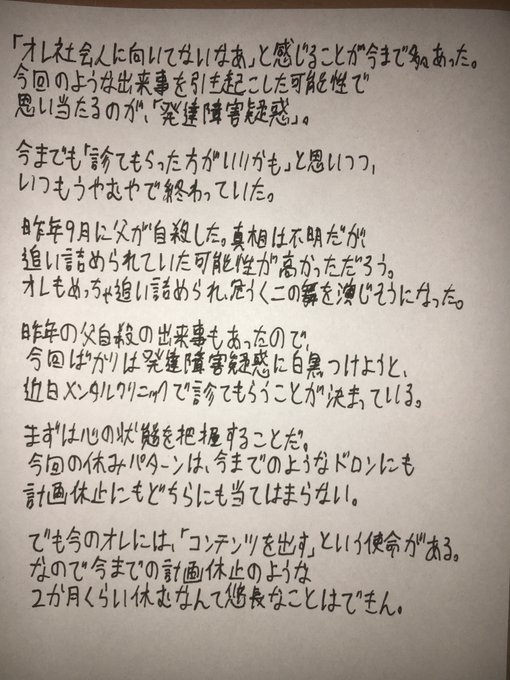 「オレ社会人に向いてないなあ」と感じることが今まで多々あった。
今回のような出来事を引き起こした可能性で
思い当たるのが、「発達障害疑惑」。
今までも「診てもらった方がいいかも」と思いつつ、
いつもうやむやで終わっていた。
昨年9月に父が自殺した。真相は不明だが
追い詰められていた可能性が高かっただろう。
オレもめっちゃ追い詰められ、危うく二の舞を演じそうになった。
昨年の父自殺の出来事もあったので、
今回ばかりは発達障害疑惑に白黒つけようと、
近日メンタルクリニックで診てもらうことが決まっている。
まずは心の状態を把握することだ。
今回の休みパターンは、今までのようなドロンにも
計画休止にもどちらにも当てはまらない。
でも今のオレには、「コンテンツを出す」という使命がある。
なので今までの計画休止のような
2か月くらい休むなんて悠長なことはできん。